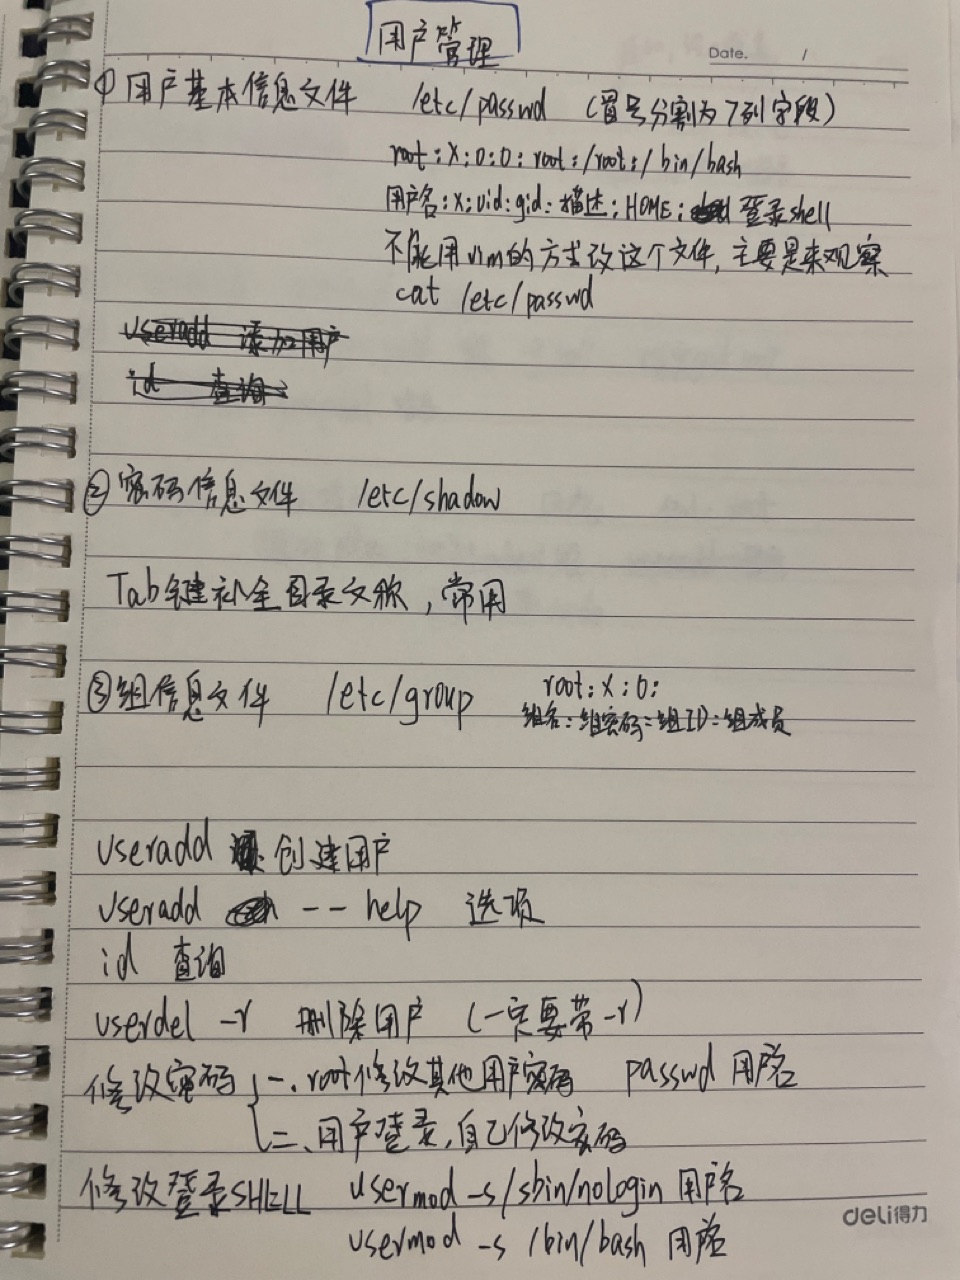 用户管理
Date. /
①用户基本信息文件 /etc/passwd (冒号分割为7列字段)
root:X:0:0:root:/root:/bin/bash
用户名:x:uid:gid:描述:HOME:登录shell
不能用vim的方式改这个文件,主要是来观察
cat /etc/passwd
useradd 添加用户
id 查询
②密码信息文件 /etc/shadow
Tab键补全目录文称,常用
③组信息文件 /etc/group root:X:0:
组名:组密码:组ID:组成员
useradd 创建用户
useradd --help 选项
id 查询
userdel -r 删除用户 (一定要带-r)
修改密码 一.root修改其他用户密码 passwd 用户名
二、用户登录,自己修改密码
修改登录SHELL usermod -s /sbin/nologin 用户名
deli得力
usermod -s /bin/bash 用户名